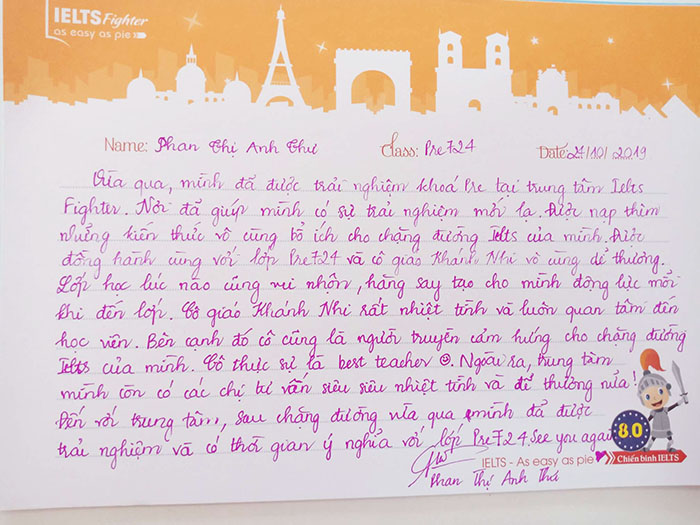 IELTS Fighter
as easy as pie
Name: Phan Thị Anh Thư Class: Pre724 Date: 27/10/2019
Vừa qua, mình đã được trải nghiệm khoá Pre tại trung tâm Ielts
Fighter. Nơi đã giúp mình có sự trải nghiệm mới lạ. Được nạp thêm
những kiến thức vô cùng bổ ích cho chặng đường Ielts của mình. Được
đồng hành cùng với lớp Pre724 và cô giáo Khánh Nhi vô cùng dễ thương.
Lớp học lúc nào cũng vui nhộn, hăng say tạo cho mình động lực mỗi
khi đến lớp. Cô giáo Khánh Nhi rất nhiệt tình và luôn quan tâm đến
học viên. Bên cạnh đó cô cũng là người truyền cảm hứng cho chặng đường
Ielts của mình. Cô thực sự là best teacher ☺. Ngoài ra, trung tâm
mình còn có các chị tư vấn siêu siêu nhiệt tình và dễ thương nữa!
Đến với trung tâm, sau chặng đường vừa qua mình đã được
trải nghiệm và có thời gian ý nghĩa với lớp Pre724. See you again
8.0
IELTS - As easy as pie
Chiến binh IELTS
Phan Thị Anh Thư